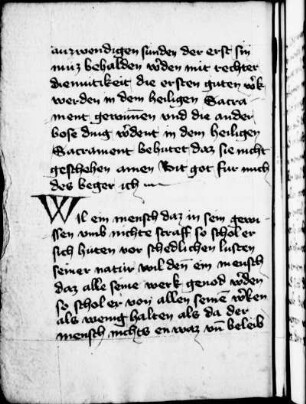 auzwendigen sunden der erst sin
muz behalden wden mit rechter
diemutikeit die ersten guten wk
werden in dem heiligen Sacra-
ment gewunnen und die ander
bose ding wdent in dem heiligen
Sacrament behutet daz sie nicht
geschehen amen Bit got fur mich
des beger ich
Wil ein mensch daz in sein gewi-
ssen umb nichte straff so schol er
sich huten vor schedlichen lusten
seiner natur wil den ein mensch
daz alle seine werk genod wden
so schol er von allen seine wken
als wenig halten als da der
mensch nichts en waz un beleib